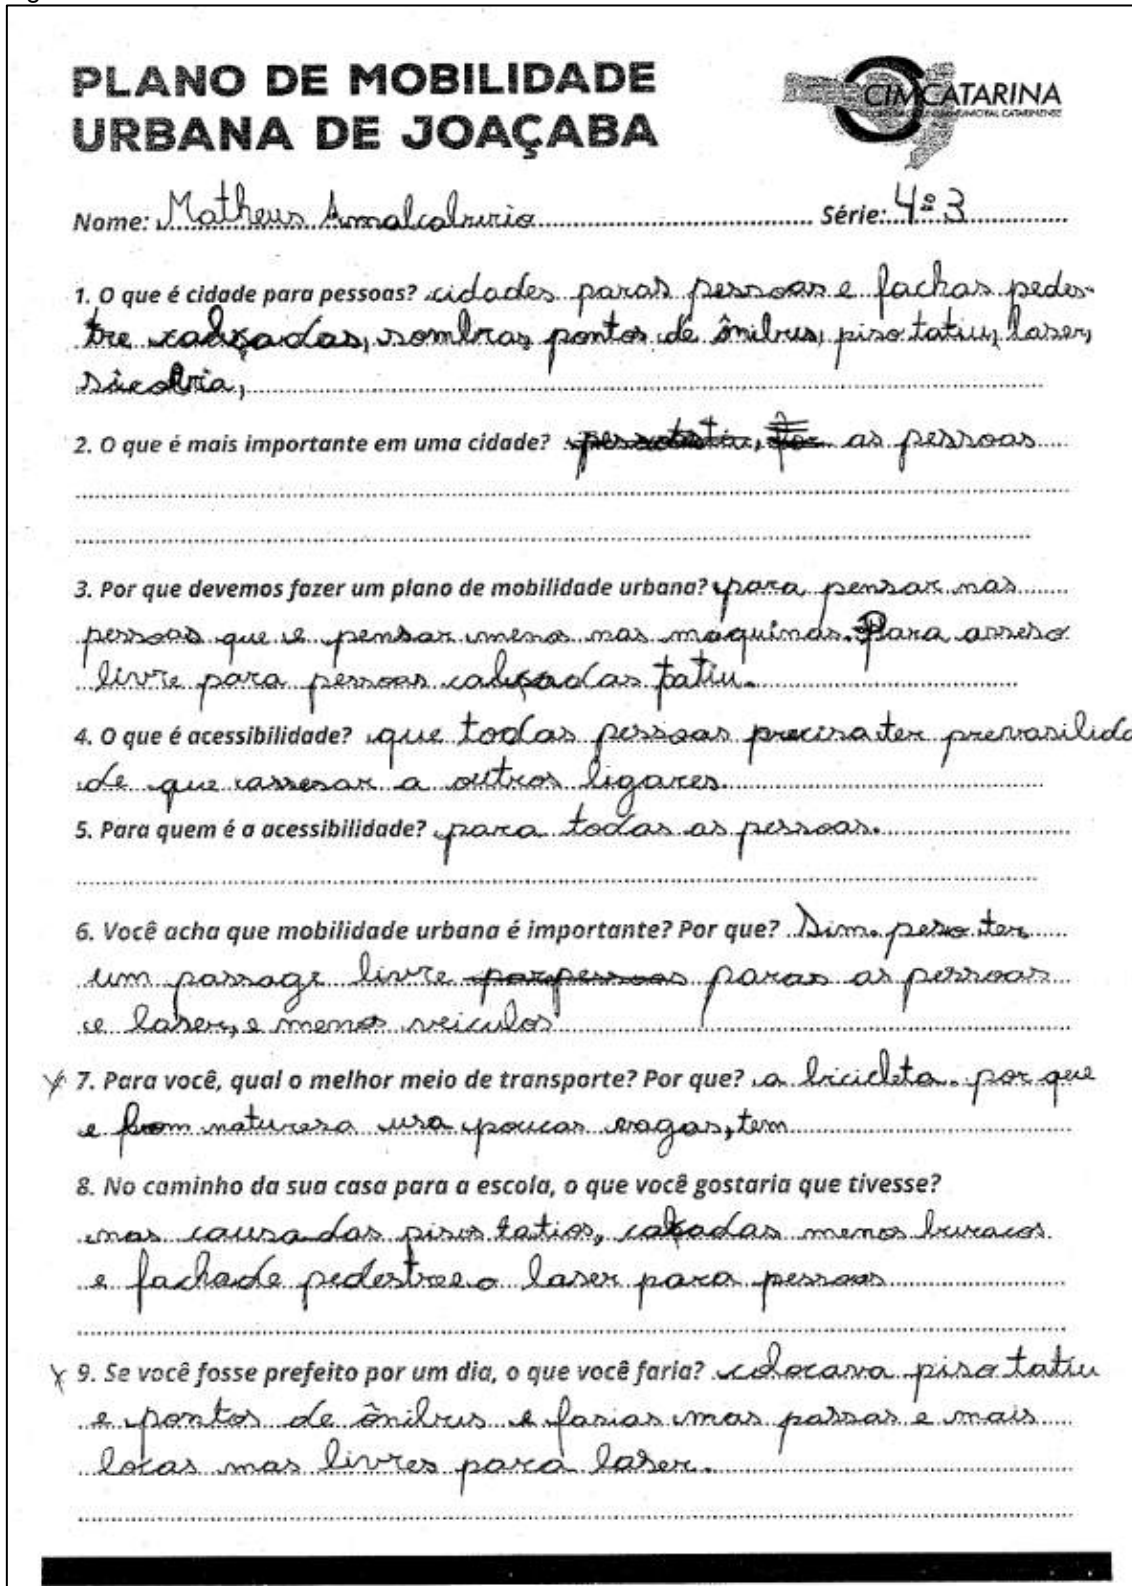 PLANO DE MOBILIDADE
URBANA DE JOAÇABA
CIMCATARINA
Nome: Matheus Série: 4º 3
1. O que é cidade para pessoas? cidades paras pessoas e fachas pedes-
tre calçadas, sombras pontos de ônibus, piso tatiu, laser,
2. O que é mais importante em uma cidade? as pessoas
3. Por que devemos fazer um plano de mobilidade urbana? para pensar nas
pessoas que e pensar menos nas maquinas. Para asseso
livre para pessoas calçadas tatiu.
4. O que é acessibilidade? que todas pessoas precisa ter
de que assesar a outros ligares.
5. Para quem é a acessibilidade? para todas as pessoas.
6. Você acha que mobilidade urbana é importante? Por que? Sim. ter
um passage livre paras as pessoas
e laser, e menos veiculos
7. Para você, qual o melhor meio de transporte? Por que? a bicicleta. por que
e bom naturesa usa poucas vagas, tem
8. No caminho da sua casa para a escola, o que você gostaria que tivesse?
mas causadas pisos tatios, calçadas menos buracos
e fachade pedestre e o laser para pessoas
9. Se você fosse prefeito por um dia, o que você faria? colocava piso tatiu
e pontos de ônibus e fasias mas passas e mais
locas mas livres para laser.